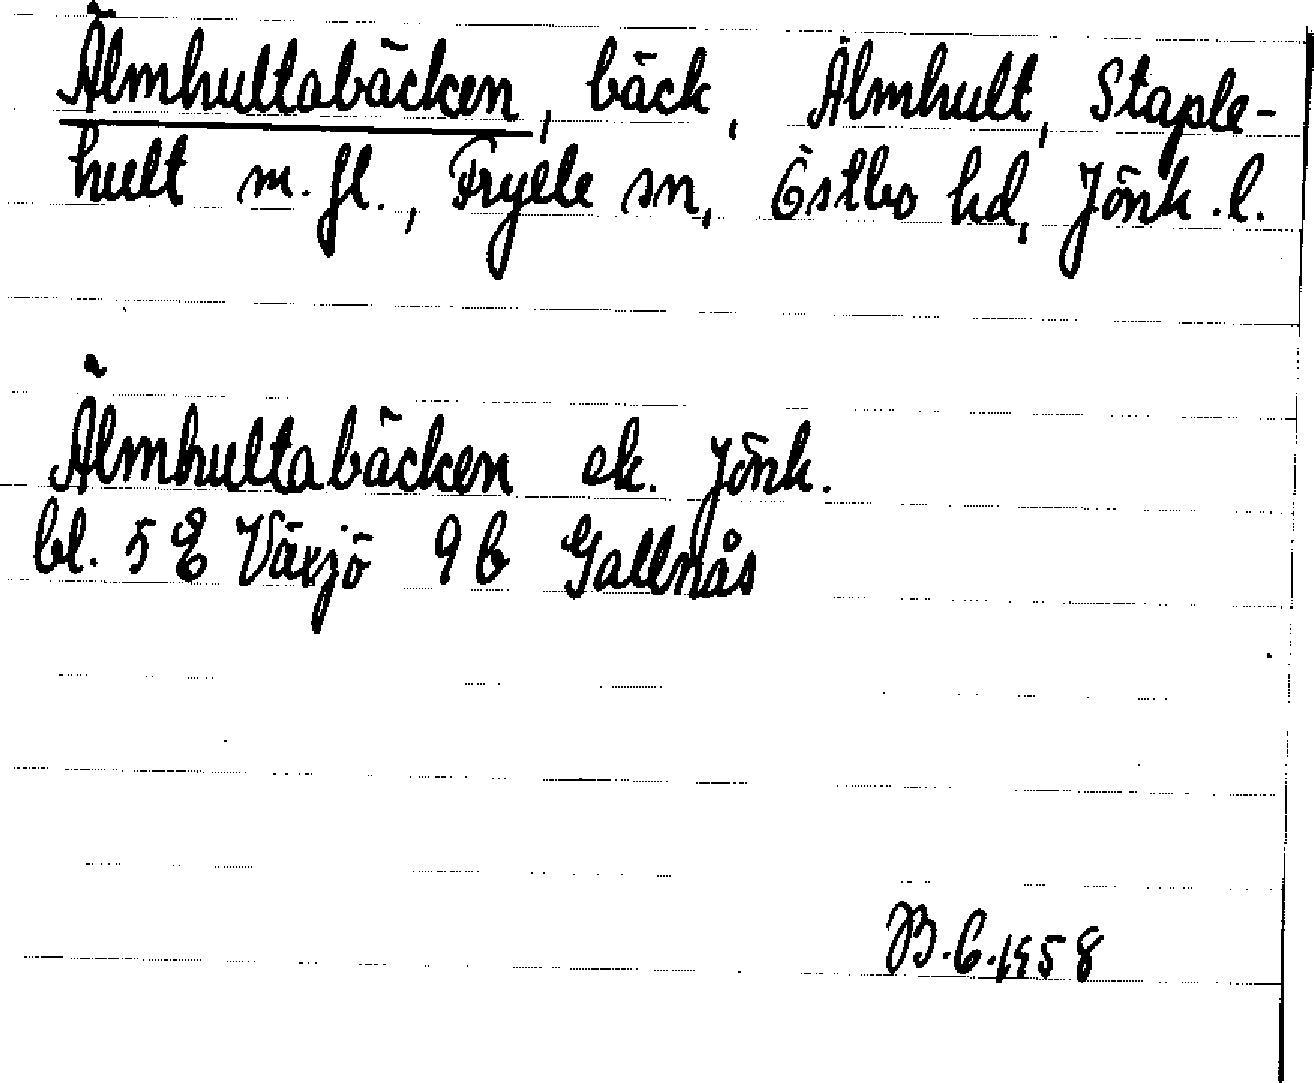 Älmhultabäcken, bäck, Älmhult, Staple-
hult m. fl., Fryele sn, Östbo hd, Jönk. l.
Älmhultabäcken ek. Jönk.
bl. 5 E Växjö 9 b Gallnås
B.C. 1958